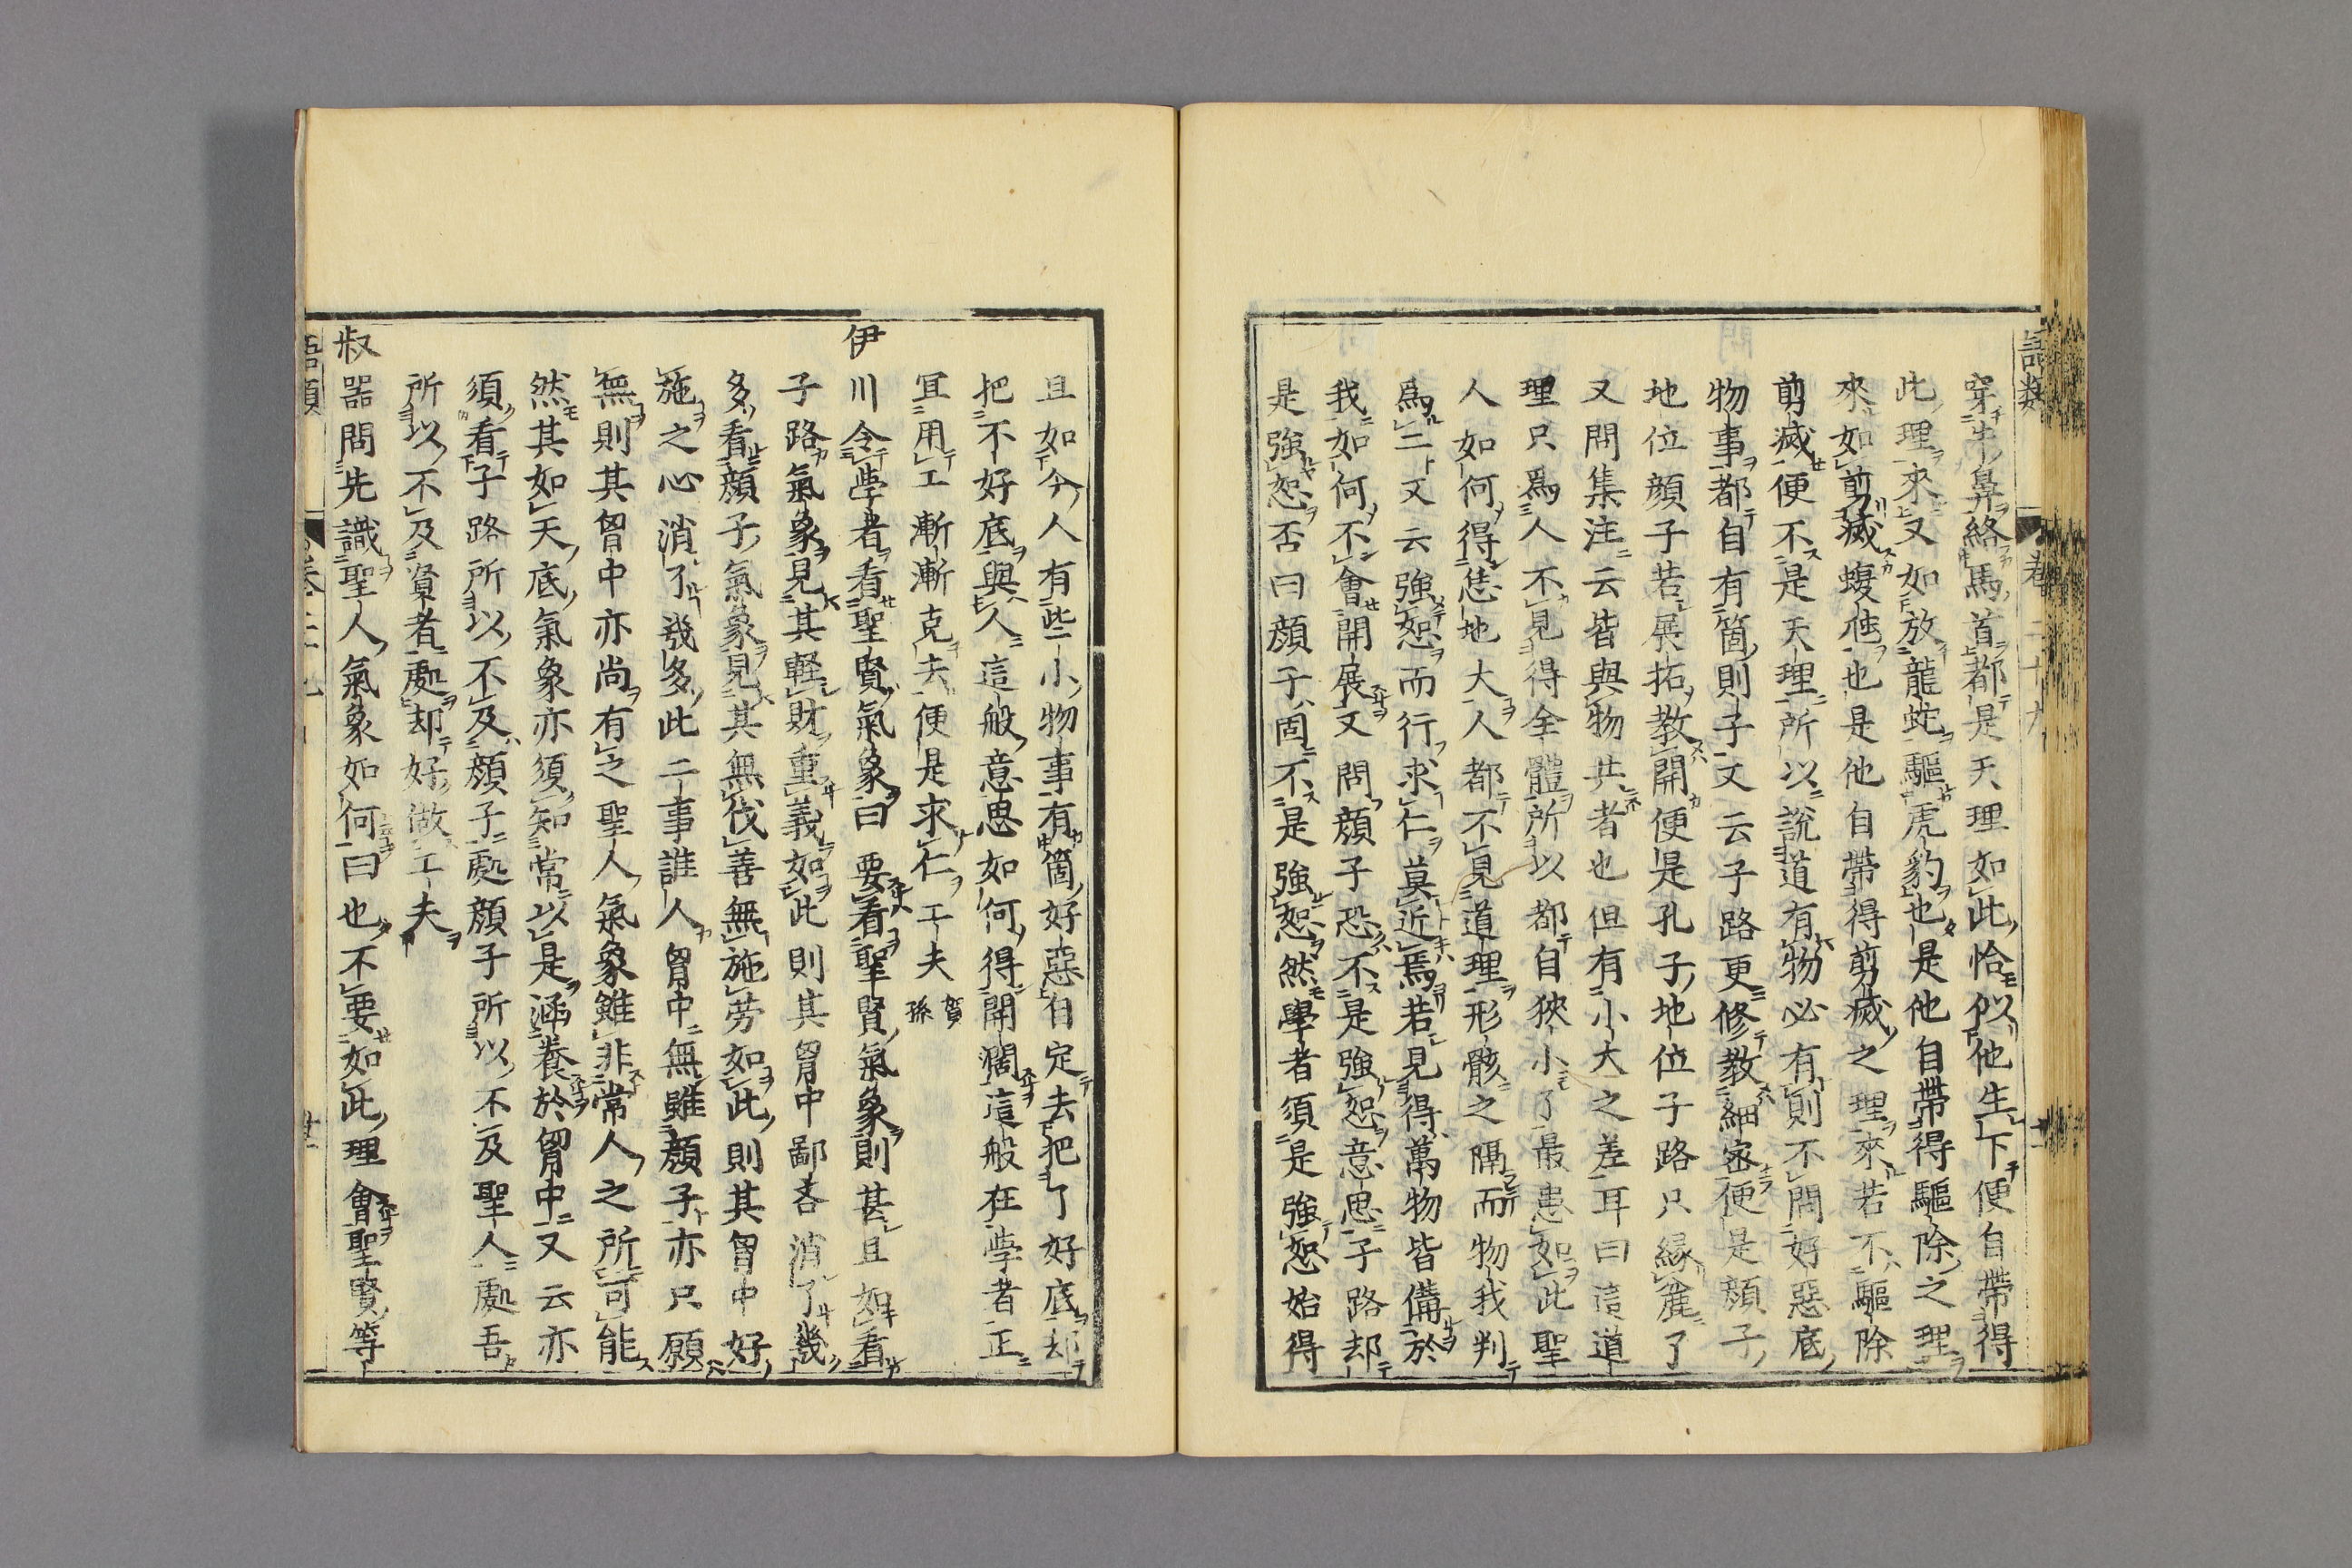 語類 卷二十九
穿牛鼻絡馬首都是天理如此恰似他生下便自帶得
此理來又如放龍蛇驅虎豹也是他自帶得驅除之理
來如剪滅蝮虺也是他自帶得剪滅之理來若不驅除
剪滅便不是天理所以說道有物必有則不問好惡底
物事都自有箇則子又云子路更修教細密便是顏子
地位顏子若展拓教開便是孔子地位子路只緣麄了
又問集注云皆與物共者也但有小大之差耳曰這道
理只爲人不見得全體所以都自狹小了最患如此聖
人如何得恁地大人都不見道理形骸之隔而物我判
爲二又云強恕而行求仁莫近焉若見得萬物皆備於
我如何不會開展又問顏子恐不是強恕意思子路却
是強恕否曰顏子固不是強恕然學者須是強恕始得
且如今人有些小物事有箇好惡自定去把了好底却
把不好底與人這般意思如何得開濶這般在學者正
宜用工漸漸克去便是求仁工夫 賀孫
伊川令學者看聖賢氣象曰要看聖賢氣象則甚且如看
子路氣象見其輕財重義如此則其胷中鄙吝消了幾
多看顏子氣象見其無伐善無施勞如此則其胷中好
施之心消了幾多此二事誰人胷中無雖顏子亦只願
無則其胷中亦尚有之聖人氣象雖非常人之所可能
然其如天底氣象亦須知常以是涵養於胷中又云亦
須看子路所以不及顏子處顏子所以不及聖人處吾
所以不及賢者處却好做工夫
叔器問先識聖人氣象如何曰也不要如此理會聖賢等
語類